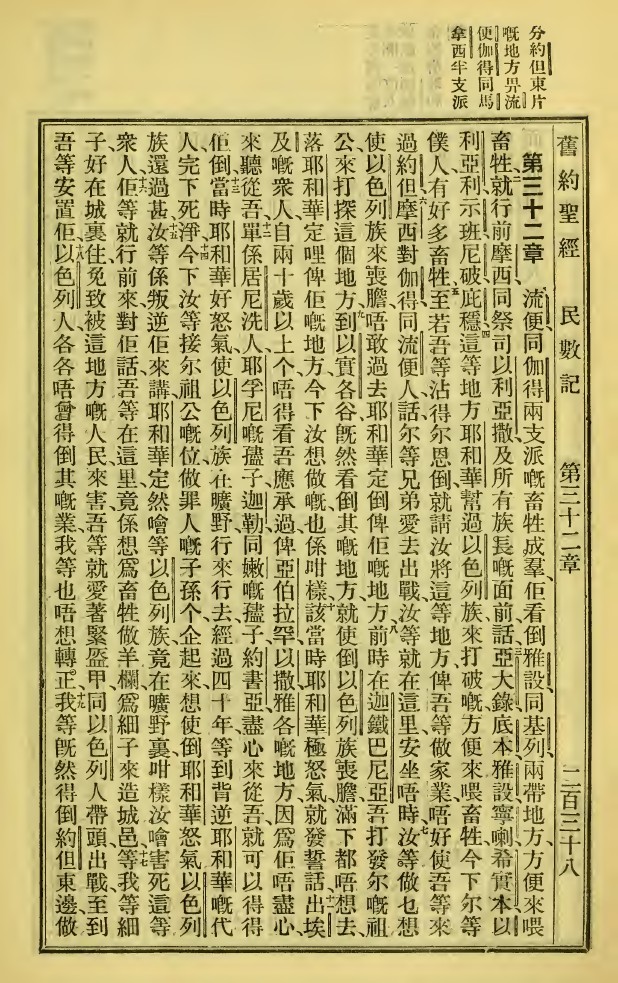 分約但東片
嘅地方畀流
便伽得同馬
拿西半支派
舊約聖經　民數記　第三十二章　二百三十八
第三十二章　流便同伽得兩支派嘅畜牲成羣、佢看倒雅設同基列兩帶地方、方便來喂
畜牲、二就行前摩西同祭司以利亞撒、及所有族長嘅面前話、三亞大錄底本雅設寧喇希實本以
利亞利示班尼破庇穩、四這等地方耶和華幫過以色列族來打破嘅、方便來喂畜牲、今下尔等
僕人有好多畜牲、五至若吾等沾得尔恩倒、就請汝將這等地方俾吾等做家業、唔好使吾等來
過約但、六摩西對伽得同流便人話、尔等兄弟愛去出戰、汝等就在這里安坐唔時、七汝等做乜想
使以色列族來喪膽、唔敢過去耶和華定倒俾佢嘅地方、八前時在迦鐵巴尼亞、吾打發尔嘅祖
公來打探這個地方、九到以實各谷、旣然看倒其嘅地方、就使倒以色列族喪膽、滿下都唔想去
落耶和華定哩俾佢嘅地方、今下汝想做嘅也係咁樣、十該當時耶和華極怒氣、就發誓話、十一出埃
及嘅衆人、自兩十歲以上个、唔得看吾應承過俾亞伯拉罕以撒雅各嘅地方、因爲佢唔盡心
來聽從吾、十二單係居尼洗人耶孚尼嘅孻子迦勒、同嫩嘅孻子約書亞、盡心來從吾、就可以得得
佢倒、十三當時耶和華好怒氣、使以色列族在曠野行來行去、經過四十年、等到背逆耶和華嘅代
人完下死淨、十四今下汝等接尔祖公嘅位、做罪人嘅子孫个、企起來想使倒耶和華怒氣以色列
族還過甚、十五汝等係叛逆佢來講、耶和華定然噲等以色列族竟在曠野裏、咁樣汝噲害死這等
衆人、十六佢等就行前來對佢話、吾等在這里竟係想爲畜牲做羊欄、爲細子來造城邑、十七等我等細
子好在城裏住、免致被這地方嘅人民來害、吾等就愛著緊盔甲、同以色列人帶頭出戰、至到
吾等安置佢、十八以色列人各各唔曾得倒其嘅業、我等也唔想轉正。十九我等旣然得倒約但東邊做